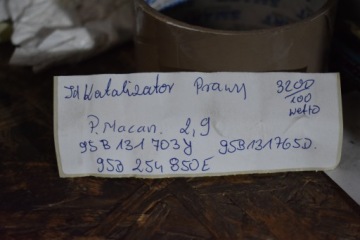 Id Katalizator Prawy 3200/100 netto
P. Macan. 2,9
95B 131 703 Y 95B131765D.
95B 254 850E